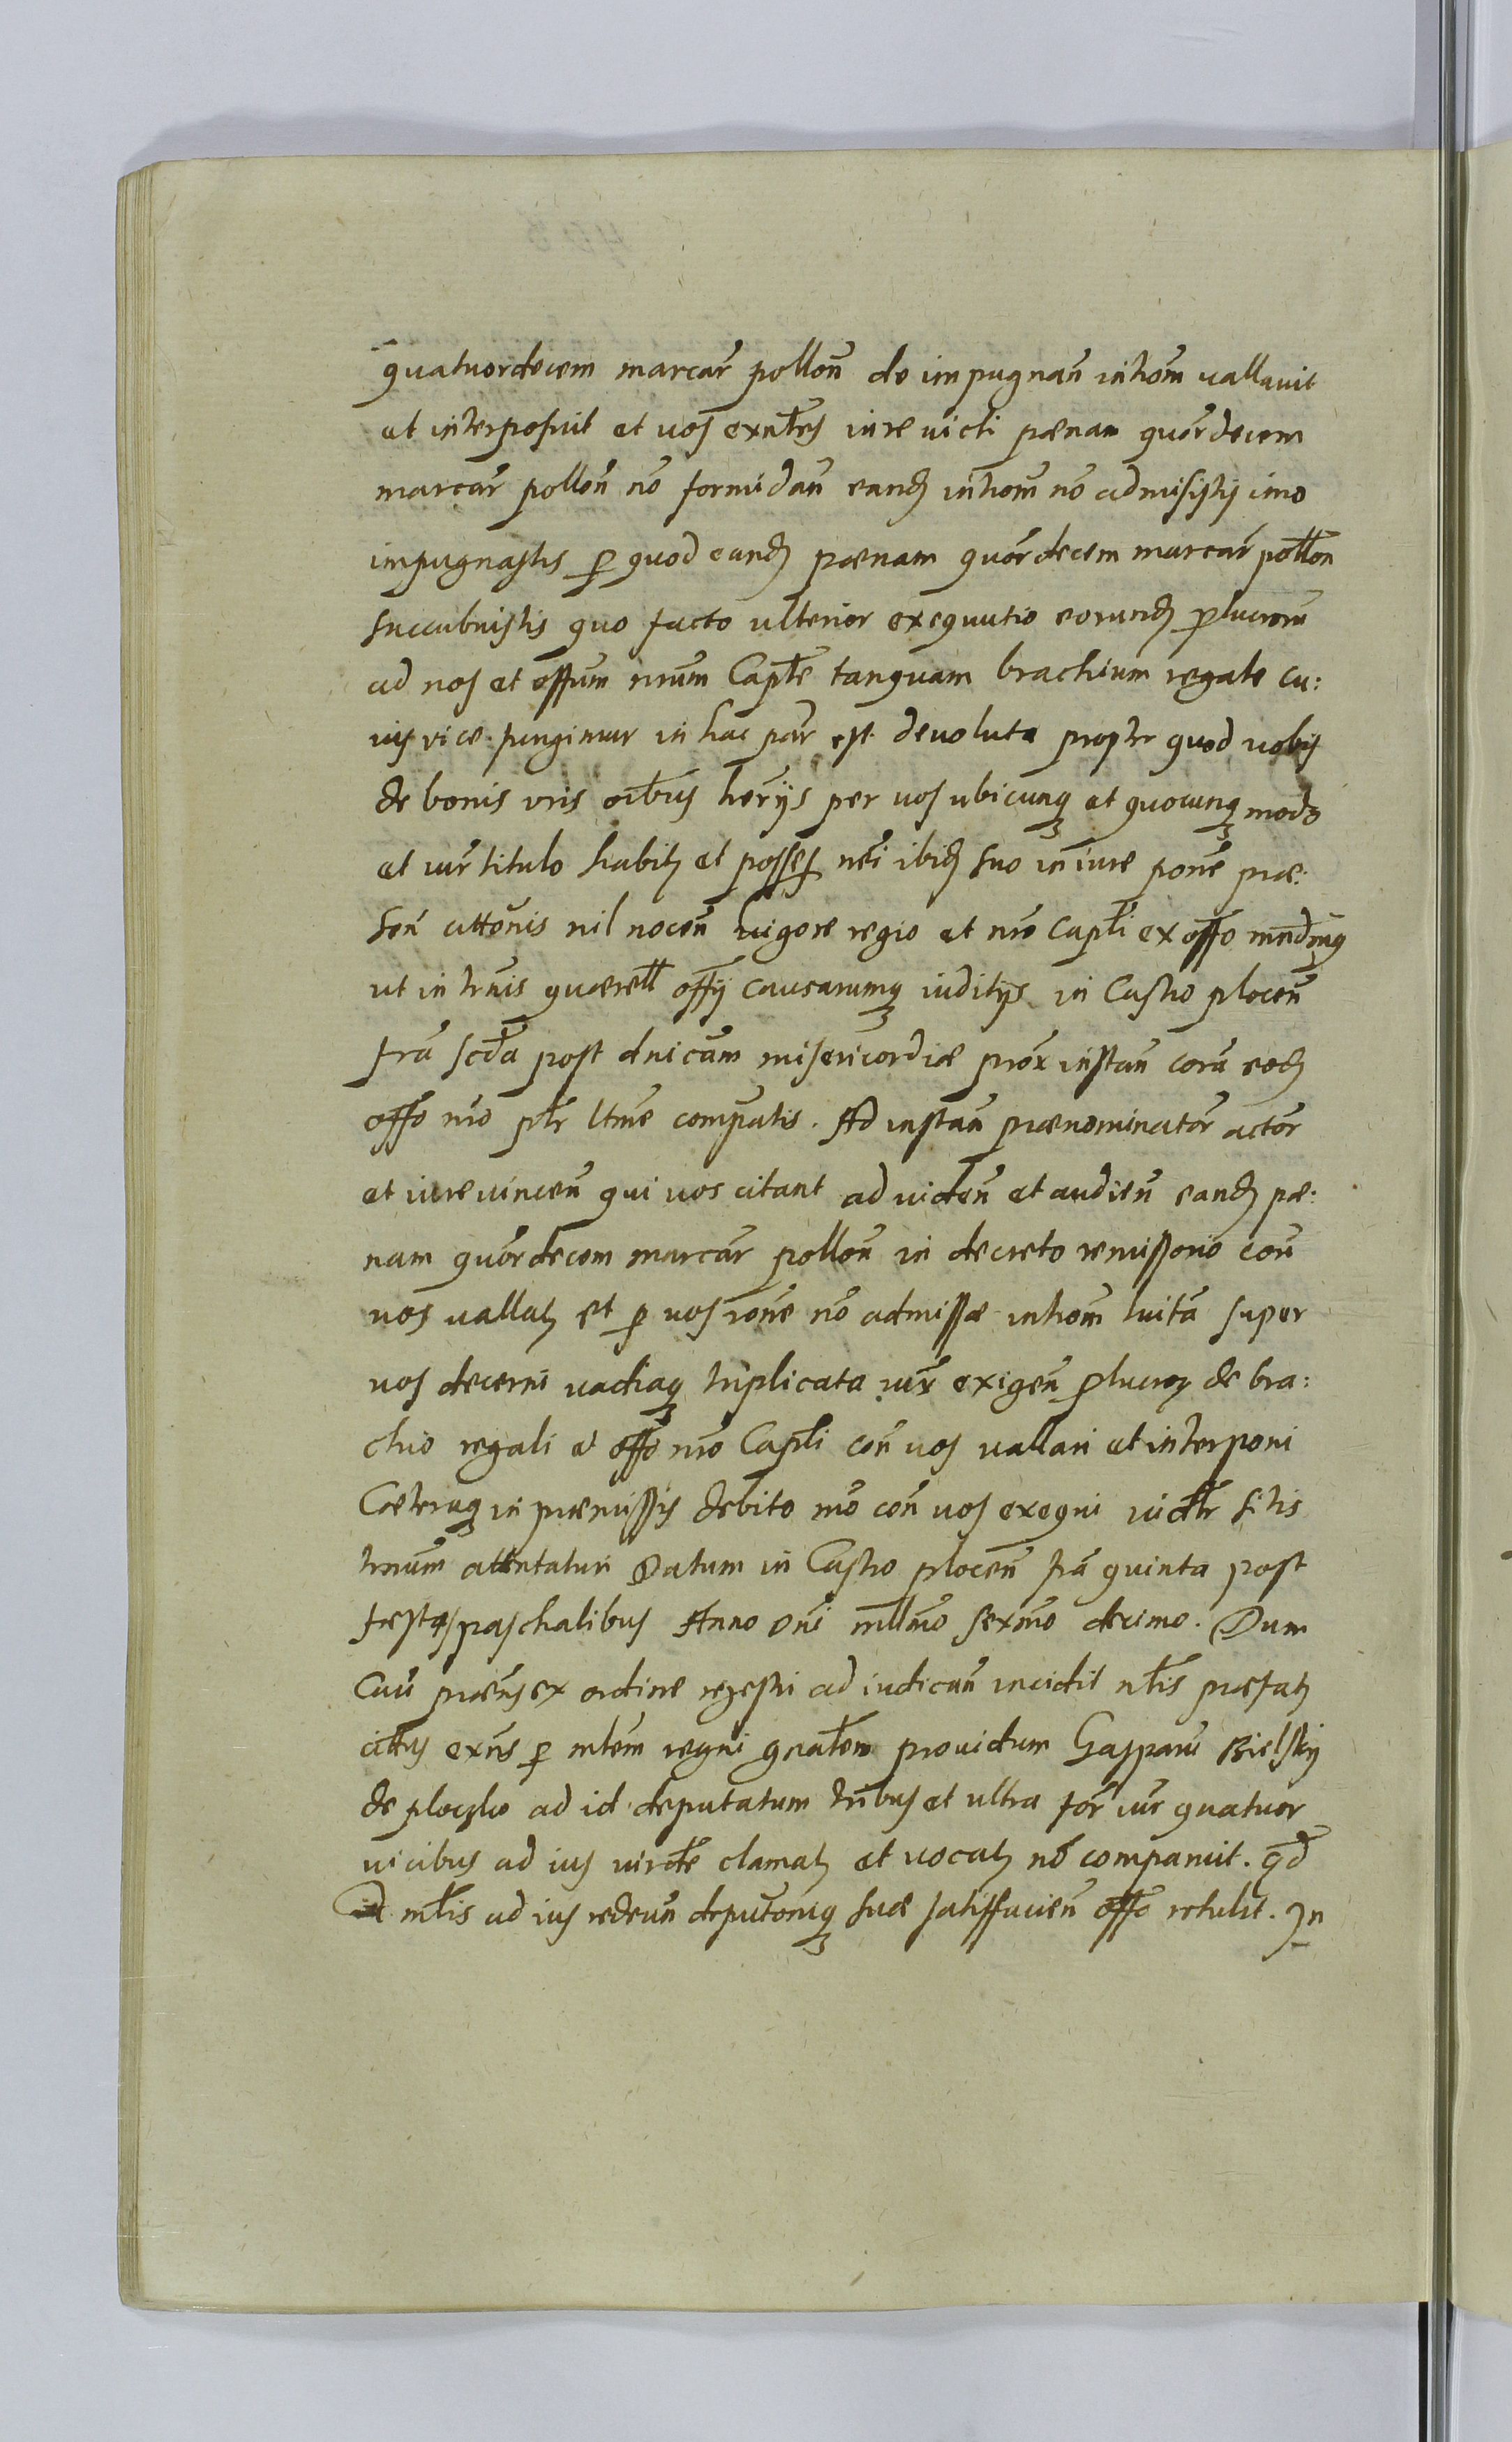 quatuordecem marcar̃ pollon̄ de impugnan̄ introm̃ vallavit
et interposuit et vos exñtes iure victi pœnam quor̃decem
marcar̃ pollon̄ nõ formidan̄ eand introm̃ nõ admisistis imo
impugnastis p quod eand pœnam quor̃decem marcar̃ pollon
succubuistis quo facto ulterior exequutio eorund plucrorũ
ad nos et offum nrum Caplẽ tanquam brachium regale cu:
ius vice fungimur in hac par̃ est devoluta propter quod vobis
de bonis vris oibus herijs per vos ubicunq et quocunq modo
et iur̃ titulo habitz et posses nẽi ibid suo in iure ponẽ præ:
sen̄ attonis nil nocen̄ vigore regio et nro Capli ex offo mndmq
ut in trñis quærell offij causarumq iuditijs in Castro plocen̄
frã scda post dnicam misericordiæ prox̃ instan̄ corã eod
offo nro pltr ltme compatis. Ad instan̄ prænominator̃ actor̃
et iure vincen̄ qui vos citant ad viden̄ et audien̄ eand pœ:
nam quor̃decem marcar̃ pollon̄ in decreto remissorio con̄
vos vallatz et p vos rone nõ admissæ introm̃ luitã super
vos decerni vadiaq triplicata iur̃ exigen̄ plucror de bra:
chio regali et offo nro Capli con̄ vos vallari et interponi
Cæteraq in præmissis debito mõ con̄ vos exequi victr sitis
trnum attentaturi Datum in Castro plocen̄ frã quinta post
festas paschalibus Anno Dni mllmo sexmo decimo. Dum
Cau præns ex ordine regestri ad iudican̄ incidit nlis præfatz
citus exns p mlem regni gnalem providum Gasparũ Bielskij
de plocko ad id deputatum tribus et ultra for̃ iur̃ quatuor
vicibus ad ius vircte clamatz et vocatz nõ comparuit. qd
id mlis ad ius redeun̄ deputoniq suæ satisfacien̄ offo retulit. In